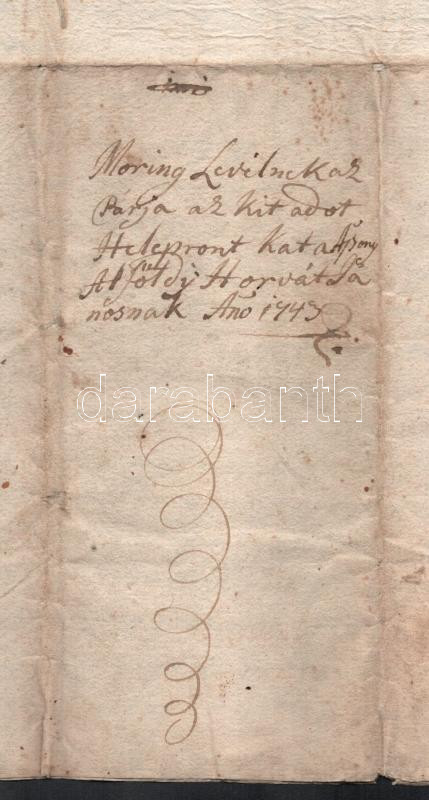 Moring Levélnek az
Párja az kit adot
Helepront Kata Aszony
Alfőldÿ Horvát Já
nosnak Año 1743
darabanth